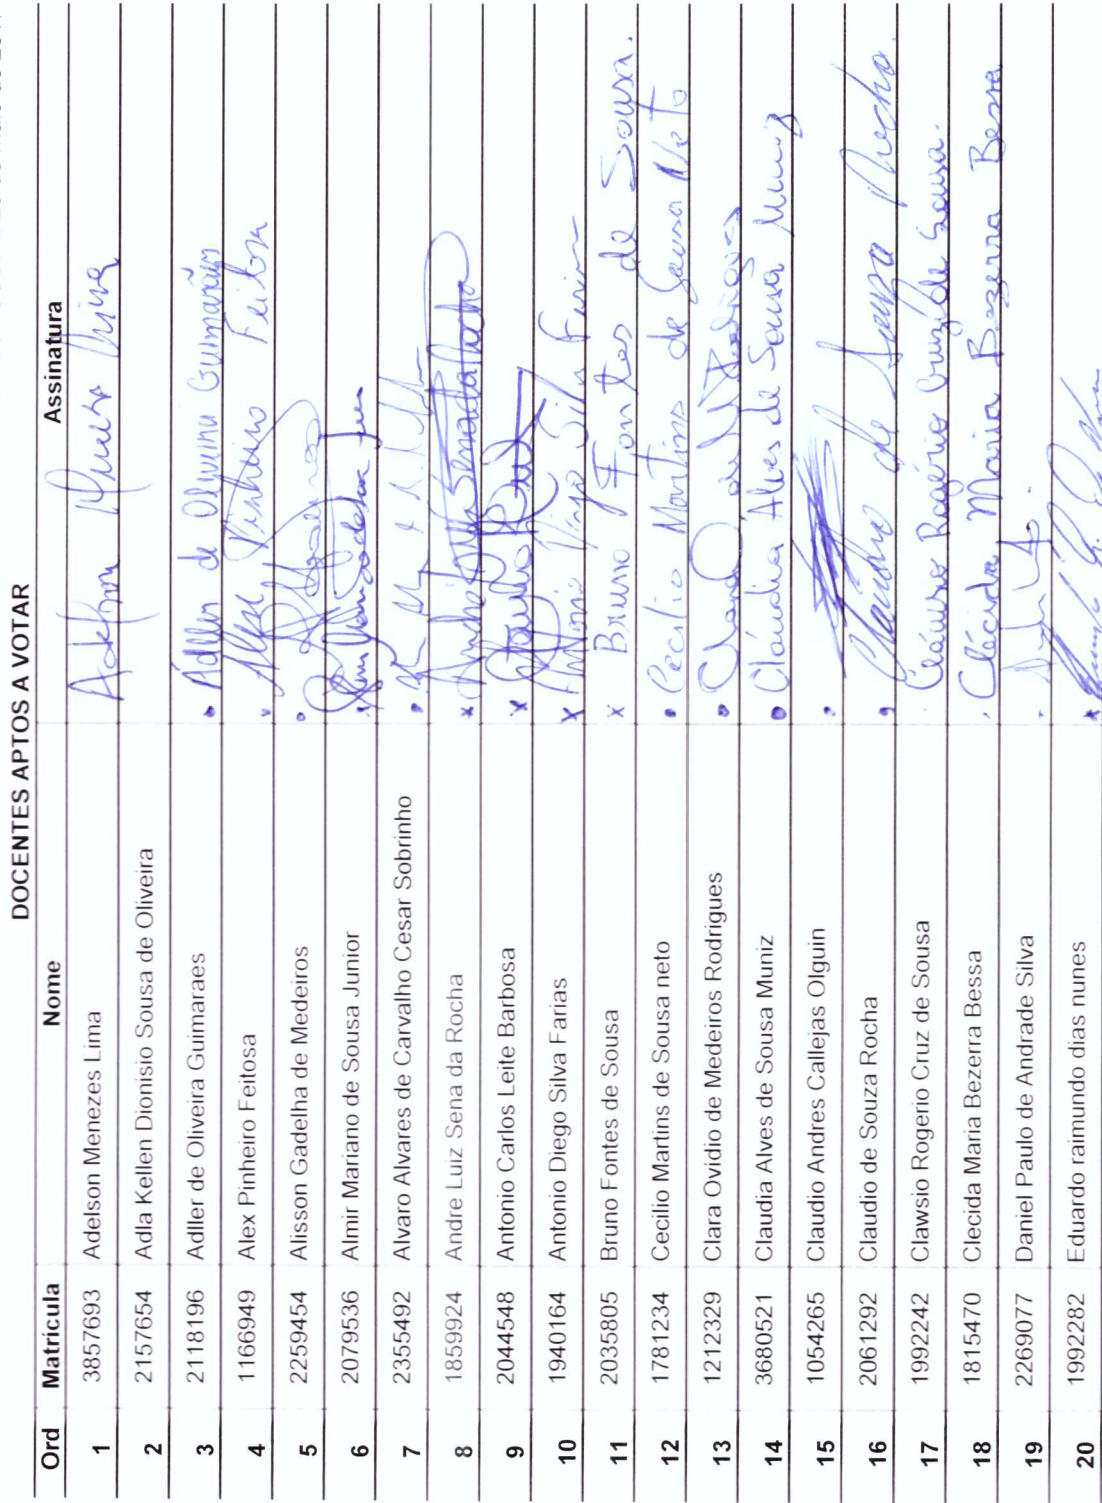 DOCENTES APTOS A VOTAR
Ord Matrícula Nome Assinatura
1 3857693 Adelson Menezes Lima
2 2157654 Adla Kellen Dionisio Sousa de Oliveira
3 2118196 Adller de Oliveira Guimaraes Adller de Oliveira Guimarães
4 1166949 Alex Pinheiro Feitosa Alex Pinheiro Feitosa
5 2259454 Alisson Gadelha de Medeiros
6 2079536 Almir Mariano de Sousa Junior
7 2355492 Alvaro Alvares de Carvalho Cesar Sobrinho
8 1859924 Andre Luiz Sena da Rocha
9 2044548 Antonio Carlos Leite Barbosa
10 1940164 Antonio Diego Silva Farias
11 2035805 Bruno Fontes de Sousa x Bruno Fontes de Sousa.
12 1781234 Cecilio Martins de Sousa neto Cecilio Martins de Sousa Neto
13 1212329 Clara Ovidio de Medeiros Rodrigues
14 3680521 Claudia Alves de Sousa Muniz Cláudia Alves de Sousa Muniz
15 1054265 Claudio Andres Callejas Olguin
16 2061292 Claudio de Souza Rocha Claudio de Souza Rocha
17 1992242 Clawsio Rogerio Cruz de Sousa Cláwsio Rogério Cruz de Sousa.
18 1815470 Clecida Maria Bezerra Bessa Clécida Maria Bezerra Bessa
19 2269077 Daniel Paulo de Andrade Silva
20 1992282 Eduardo raimundo dias nunes